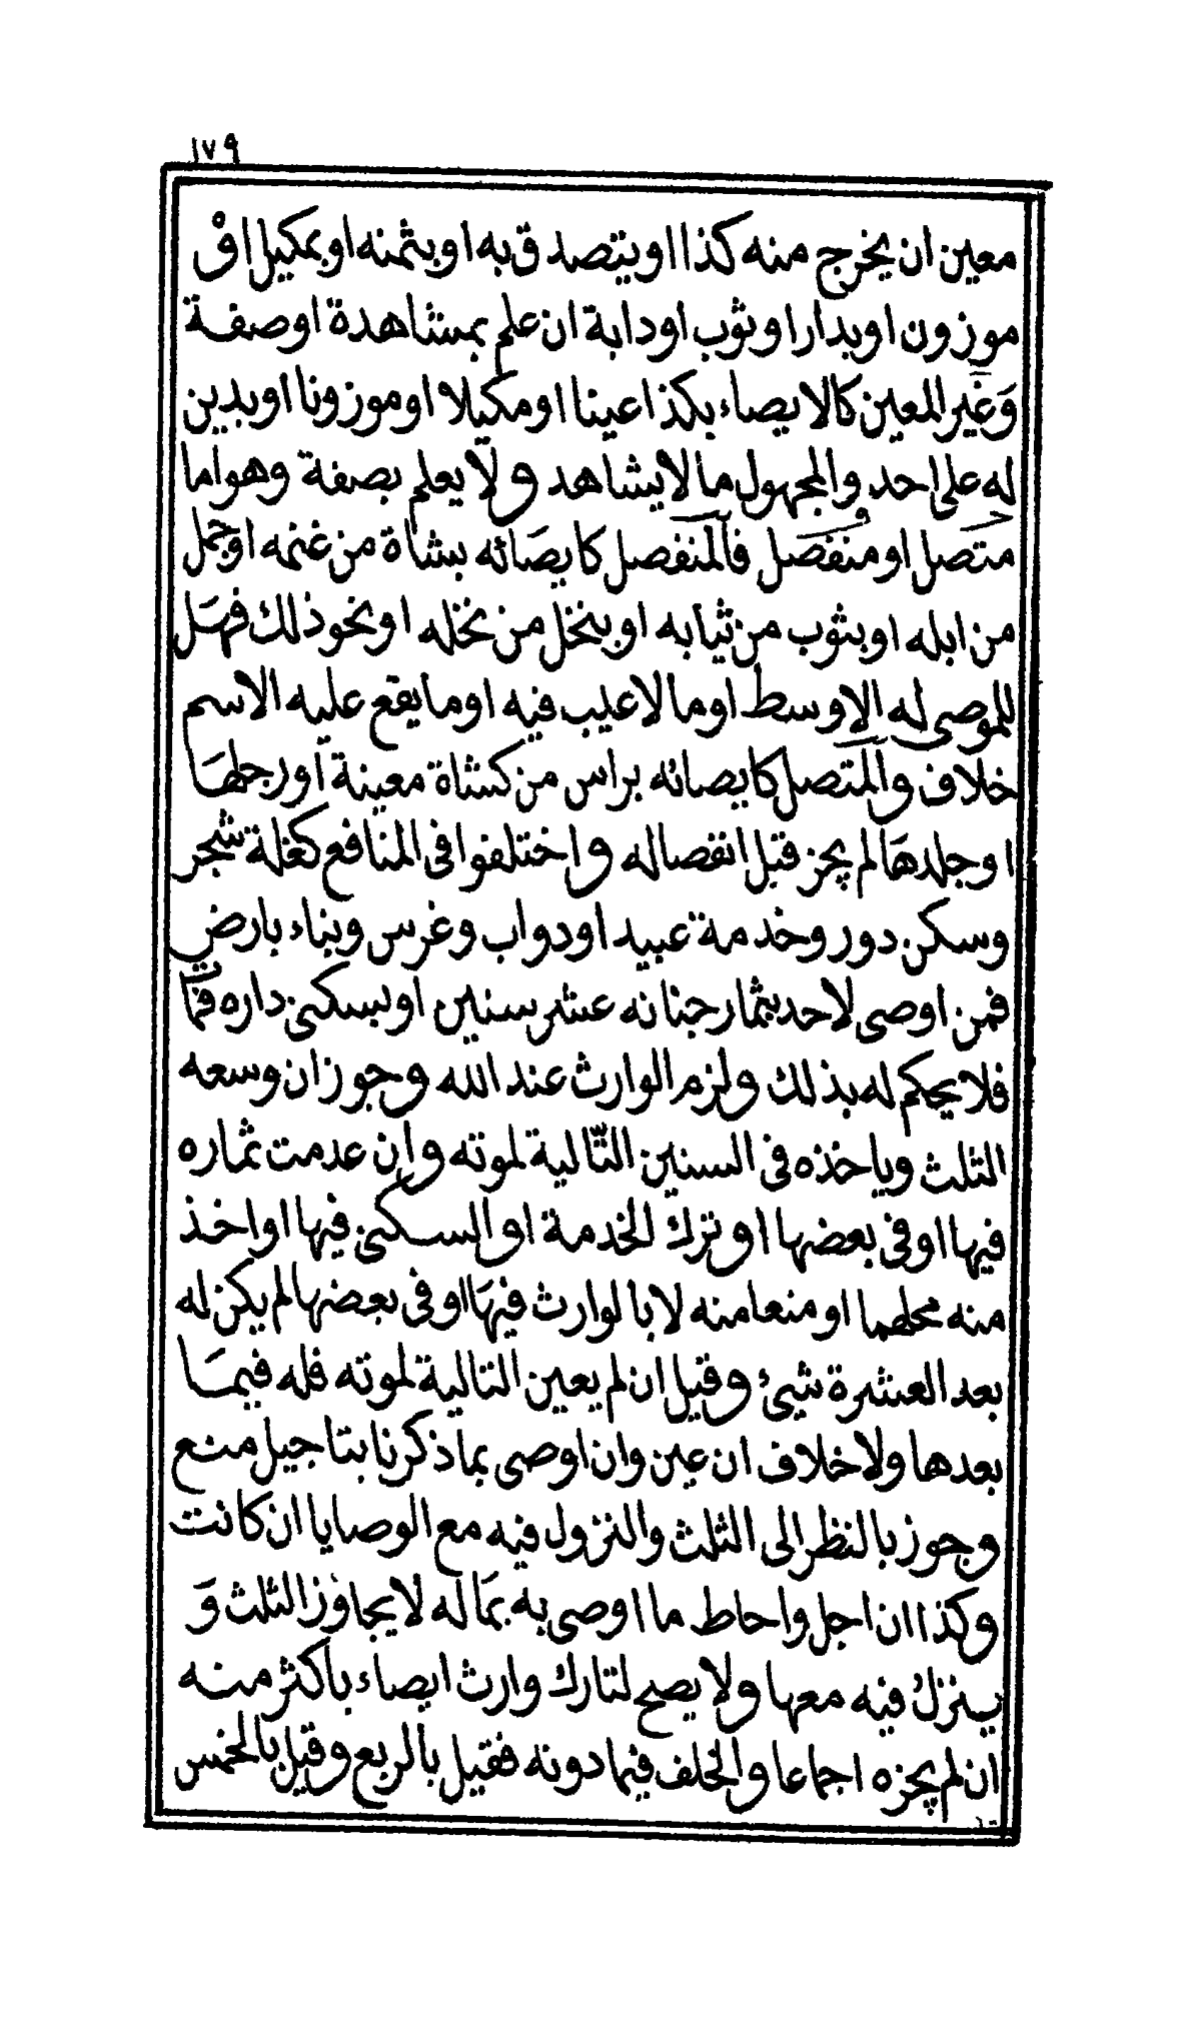 ١٧٩
معين ان يخرج منه كذا او يتصدق به او بثمنه او بمكيل او
موزون او بدار او بثوب او دابة ان علم بمشاهدة او صفة
وَغير المعين كالايصاء بكذا عينا او مكيلا او موزونا او بدين
له على احد والمجهول ما لا يشاهد ولا يعلم بصفة وهو اما
متصل او منفصل فالمنفصل كايصَائه بشاة من غنمه او جمل
من ابله او بثوب من ثيابه او بنخل من نخله او نحو ذلك فهَل
للموصى له الاوسط او ما لا عيب فيه او ما يقع عليه الاسم
خلاف والمتصل كايصائه براس من كشاة معينة او رجلهَا
او جلدهَا لم يجز قبل انفصاله واختلفوا فى المنافع كغلة شجر
وسكن دور وخدمة عبيد او دواب وغرس وبناء بارض
فمن اوصى لاحد بثمار جنانه عشر سنين او بسكنى داره فمَا
فلا يحكم له بذلك ولزم الوارث عند الله وجوز ان وسعه
الثلث وياخذه فى السنين التّالية لموته وان عدمت ثماره
فيها او فى بعضها او ترك الخدمة او السكنى فيها او اخذ
منه محلهما او منعا منه لا بالوارث فيهَا او فى بعضها لم يكن له
بعد العشرة شيئ وقيل ان لم يعين التالية لموته فله فيمَا
بعدها ولا خلاف ان عين وان اوصى بما ذكرنا بتاجيل منع
وجوز بالنظر الى الثلث والنزول فيه مع الوصايا ان كانت
وكذا ان اجل واحاط ما اوصى به بمَا له لا يجاوز الثلث وَ
ينزل فيه معها ولا يصح لتارك وارث ايصاء باكثر منه
ان لم يجزه اجماعا والخلف فيما دونه فقيل بالربع وقيل بالخمس